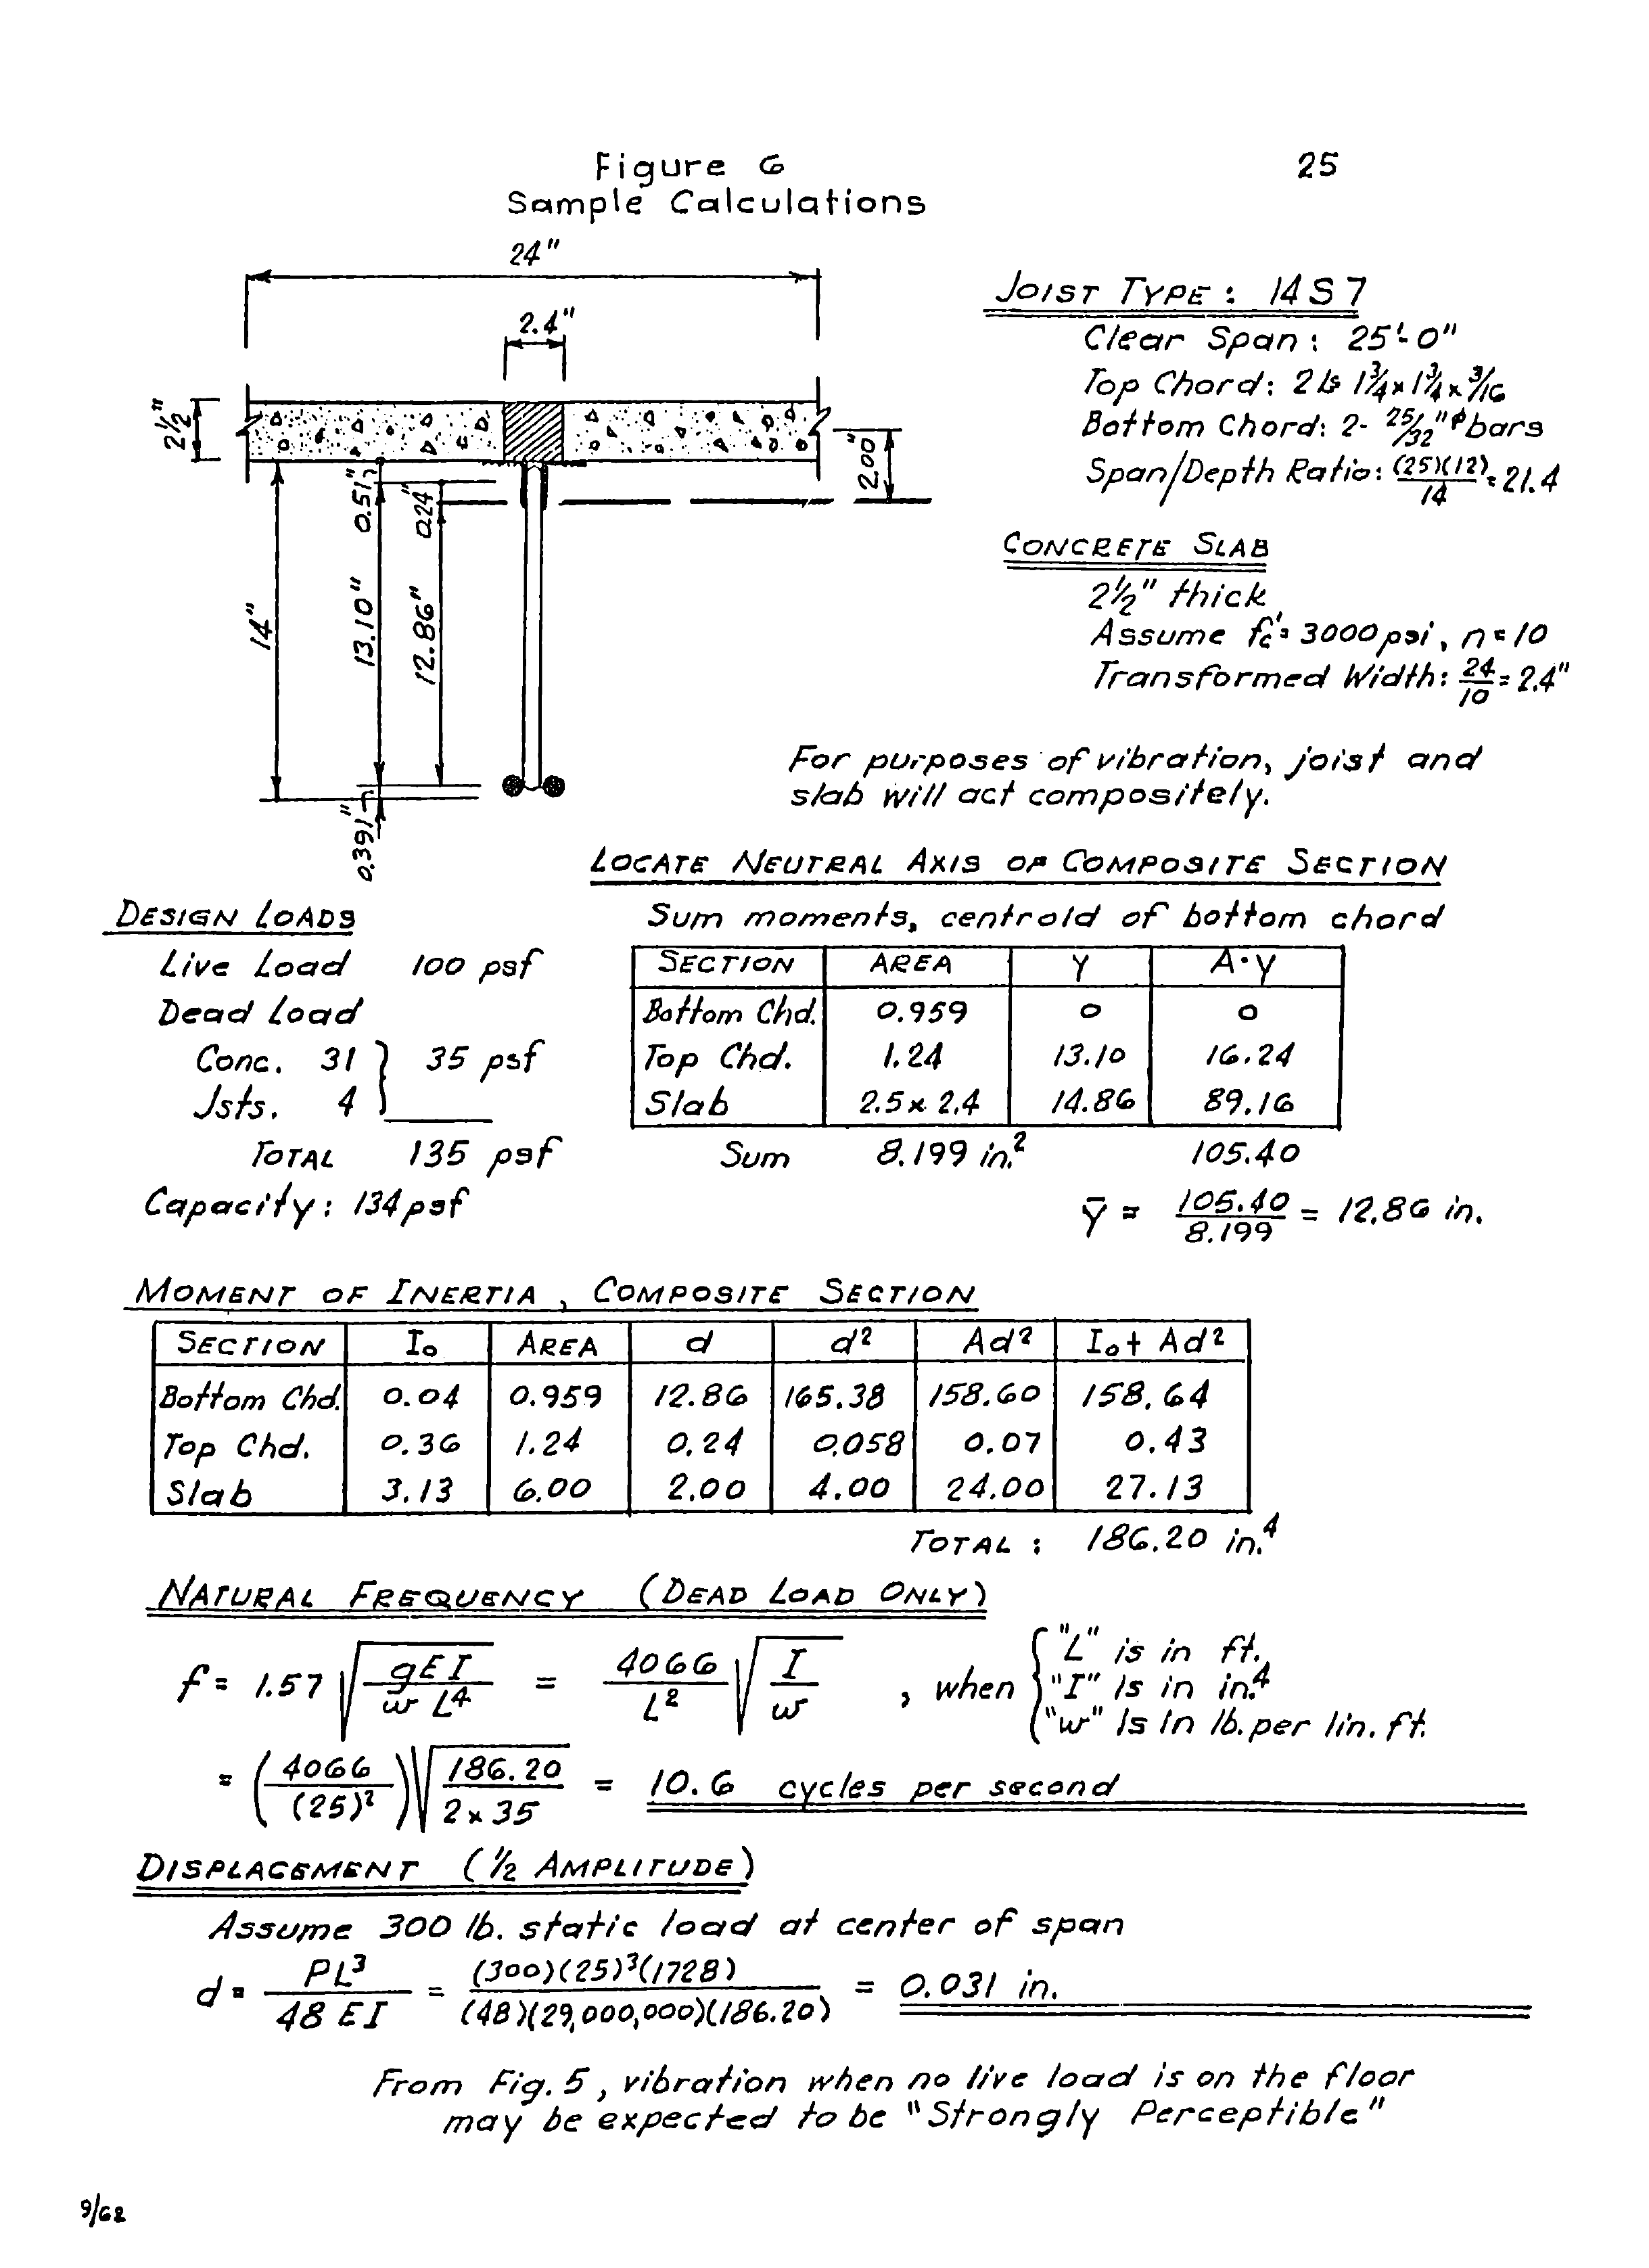 Figure 6
25
Sample Calculations
24"
2.4"
2½"
0.51"
0.24"
2.00"
14"
13.10"
12.86"
0.391"
JOIST TYPE: 14S7
Clear Span: 25'-0"
Top Chord: 2 Ls 1¾ x 1¾ x 3/16
Bottom Chord: 2- 25/32"ϕ bars
Span/Depth Ratio: (25)(12)/14 = 21.4
CONCRETE SLAB
2½" thick
Assume fc' = 3000 psi, n = 10
Transformed Width: 24/10 = 2.4"
For purposes of vibration, joist and
slab will act compositely.
LOCATE NEUTRAL AXIS OF COMPOSITE SECTION
Sum moments, centroid of bottom chord
SECTION AREA Y A·Y
Bottom Chd. 0.959 0 0
Top Chd. 1.24 13.10 16.24
Slab 2.5 x 2.4 14.86 89.16
Sum 8.199 in.² 105.40
ȳ = 105.40/8.199 = 12.86 in.
DESIGN LOADS
Live Load 100 psf
Dead Load
Conc. 31 } 35 psf
Jsts. 4
TOTAL 135 psf
Capacity: 134 psf
MOMENT OF INERTIA, COMPOSITE SECTION
SECTION I₀ AREA d d² Ad² I₀ + Ad²
Bottom Chd. 0.04 0.959 12.86 165.38 158.60 158.64
Top Chd. 0.36 1.24 0.24 0.058 0.07 0.43
Slab 3.13 6.00 2.00 4.00 24.00 27.13
TOTAL: 186.20 in.⁴
NATURAL FREQUENCY (DEAD LOAD ONLY)
f = 1.57 √(gEI / wL⁴) = 4066/L² √(I/w), when { "L" is in ft.
"I" Is in in.⁴
"w" Is In lb. per lin. ft.
= (4066/(25)²) √(186.20 / 2 x 35) = 10.6 cycles per second
DISPLACEMENT (½ AMPLITUDE)
Assume 300 lb. static load at center of span
d = PL³/48EI = (300)(25)³(1728)/(48)(29,000,000)(186.20) = 0.031 in.
From Fig. 5, vibration when no live load is on the floor
may be expected to be "Strongly Perceptible"
9/62